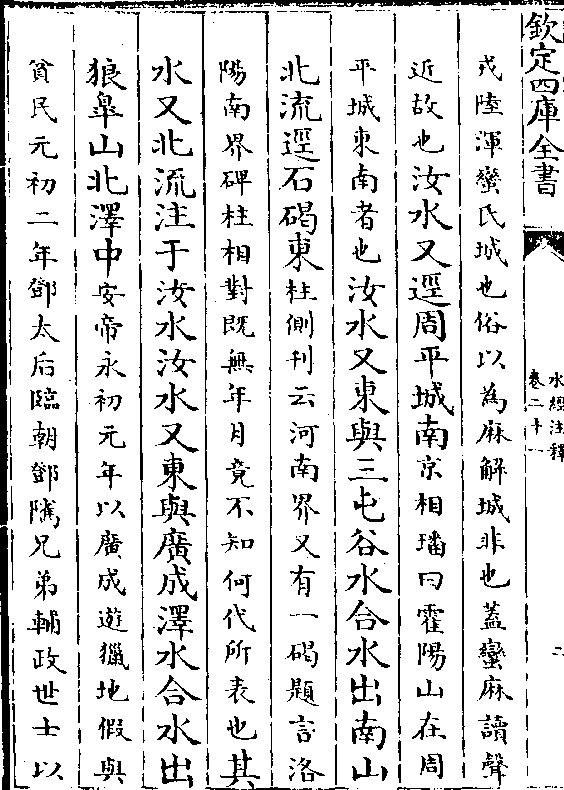 欽定四庫全書
水經注釋
卷二十一
二
戎陸渾蠻氏城也俗以為麻解城非也蓋蠻麻讀聲
近故也汝水又逕周平城南京相璠曰霍陽山在周
平城東南者也汝水又東與三屯谷水合水出南山
北流逕石碣東柱側刊云河南界又有一碣題言洛
陽南界碑柱相對既無年月竟不知何代所表也其
水又北流注于汝水汝水又東與廣成澤水合水出
狼皋山北澤中安帝永初元年以廣成遊獵地假與
貧民元初二年鄧太后臨朝鄧隲兄弟輔政世士以